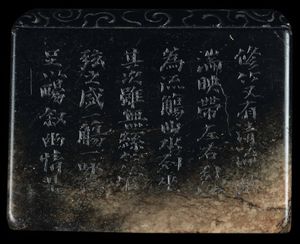 修竹又有清流激
湍暎帶左右引以
為流觴曲水列坐
其次雖無絲竹管
弦之盛一觴一詠
足以暢叙幽情是